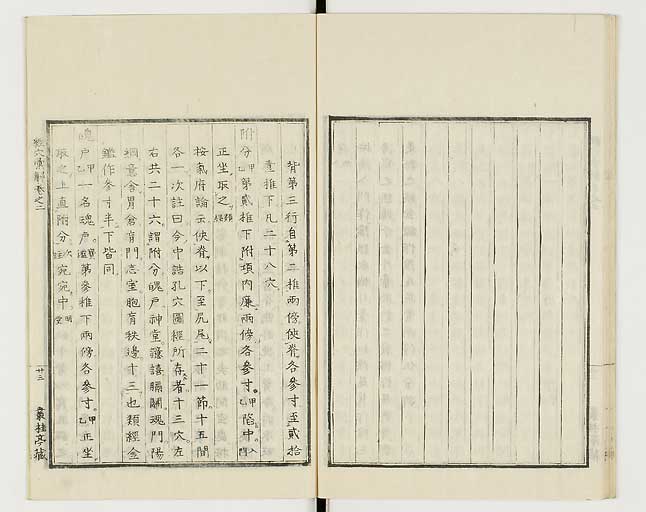 背第三行自第二椎兩傍俠脊各參寸至貳拾
壹椎下凡二十八穴
附分甲乙第貳椎下附項內廉兩傍各參寸甲乙陷中入門
正坐取之類經
按氣府論云俠脊以下至尻尾二十一節十五間
各一次註曰今中誥孔穴圖經所存者十三穴左
右共二十六謂附分魄戶神堂譩譆膈關魂門陽
綱意舍胃倉肓門志室胞肓秩邊十三也類經金
鑑作參寸半下皆同
魄戶甲乙一名魂戶資生第參椎下兩傍各參寸甲乙正坐
取之上直附分次註宛宛中明堂
穴彙解卷之二
廿三
叢桂亭藏